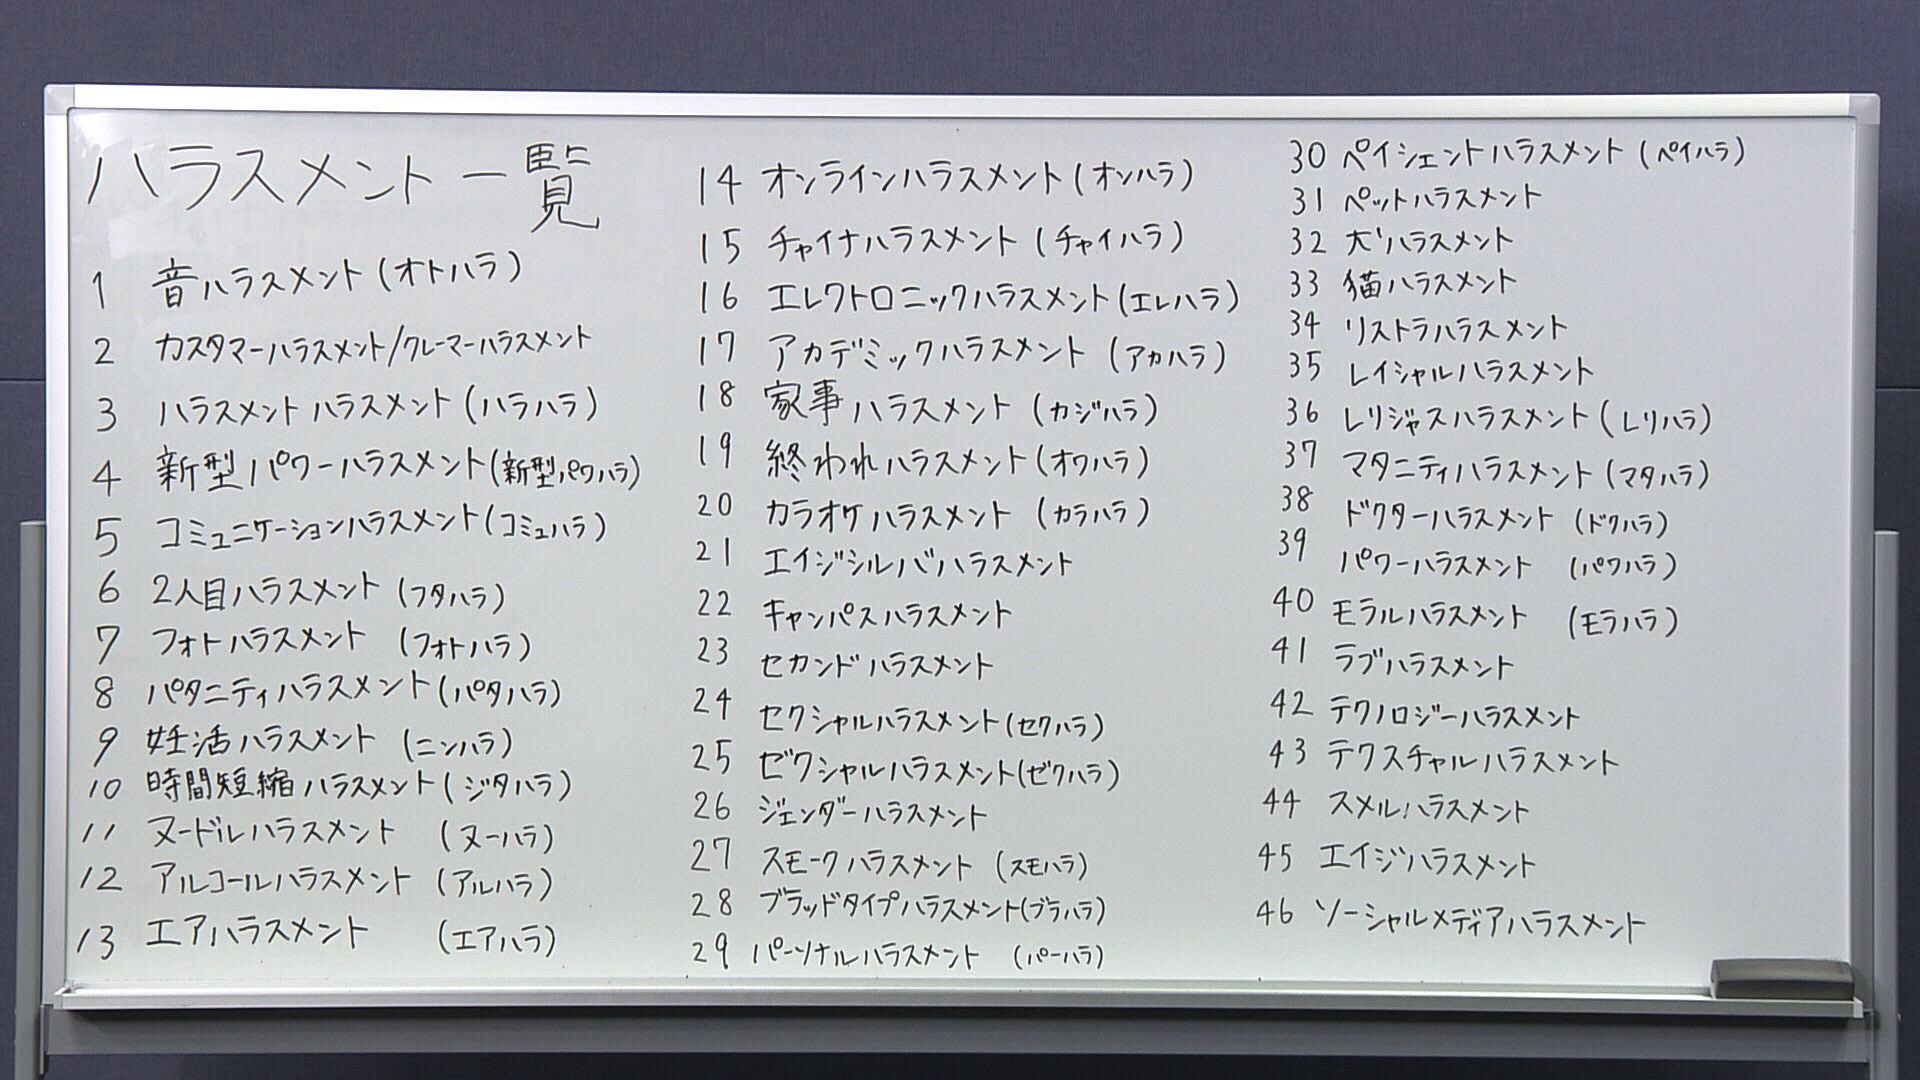 ハラスメント一覧
1 音ハラスメント(オトハラ)
2 カスタマーハラスメント/クレーマーハラスメント
3 ハラスメントハラスメント(ハラハラ)
4 新型パワーハラスメント(新型パワハラ)
5 コミュニケーションハラスメント(コミュハラ)
6 2人目ハラスメント(フタハラ)
7 フォトハラスメント (フォトハラ)
8 パタニティハラスメント(パタハラ)
9 妊活ハラスメント (ニンハラ)
10 時間短縮ハラスメント(ジタハラ)
11 ヌードルハラスメント (ヌーハラ)
12 アルコールハラスメント (アルハラ)
13 エアハラスメント (エアハラ)
14 オンラインハラスメント(オンハラ)
15 チャイナハラスメント (チャイハラ)
16 エレクトロニックハラスメント(エレハラ)
17 アカデミックハラスメント (アカハラ)
18 家事ハラスメント (カジハラ)
19 終われハラスメント(オワハラ)
20 カラオケハラスメント (カラハラ)
21 エイジシルバハラスメント
22 キャンパスハラスメント
23 セカンドハラスメント
24 セクシャルハラスメント(セクハラ)
25 ゼクシャルハラスメント(ゼクハラ)
26 ジェンダーハラスメント
27 スモークハラスメント (スモハラ)
28 ブラッドタイプハラスメント(ブラハラ)
29 パーソナルハラスメント (パーハラ)
30 ペイシェントハラスメント(ペイハラ)
31 ペットハラスメント
32 犬ハラスメント
33 猫ハラスメント
34 リストラハラスメント
35 レイシャルハラスメント
36 レリジャスハラスメント(レリハラ)
37 マタニティハラスメント(マタハラ)
38 ドクターハラスメント (ドクハラ)
39 パワーハラスメント (パワハラ)
40 モラルハラスメント (モラハラ)
41 ラブハラスメント
42 テクノロジーハラスメント
43 テクスチャルハラスメント
44 スメルハラスメント
45 エイジハラスメント
46 ソーシャルメディアハラスメント